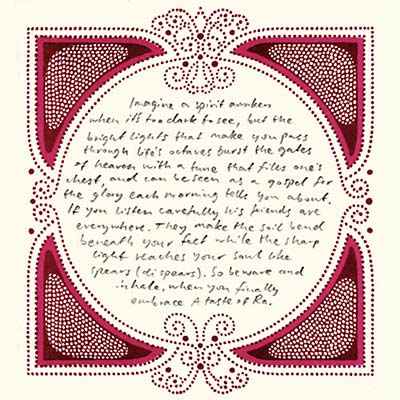 Imagine a spirit awaken
when it's too dark to see, but the
bright lights that make you pass
through life's octaves burst the gates
of heaven with a tune that files one's
chest, and can be seen as a gospel for
the glory each morning tells you about.
If you listen carefully his friends are
everywhere. They make the soil bend
beneath your felt while the sharp
light reaches your soul like
spears (di spears). So beware and
inhale, when you finally
embrace A taste of Ra.